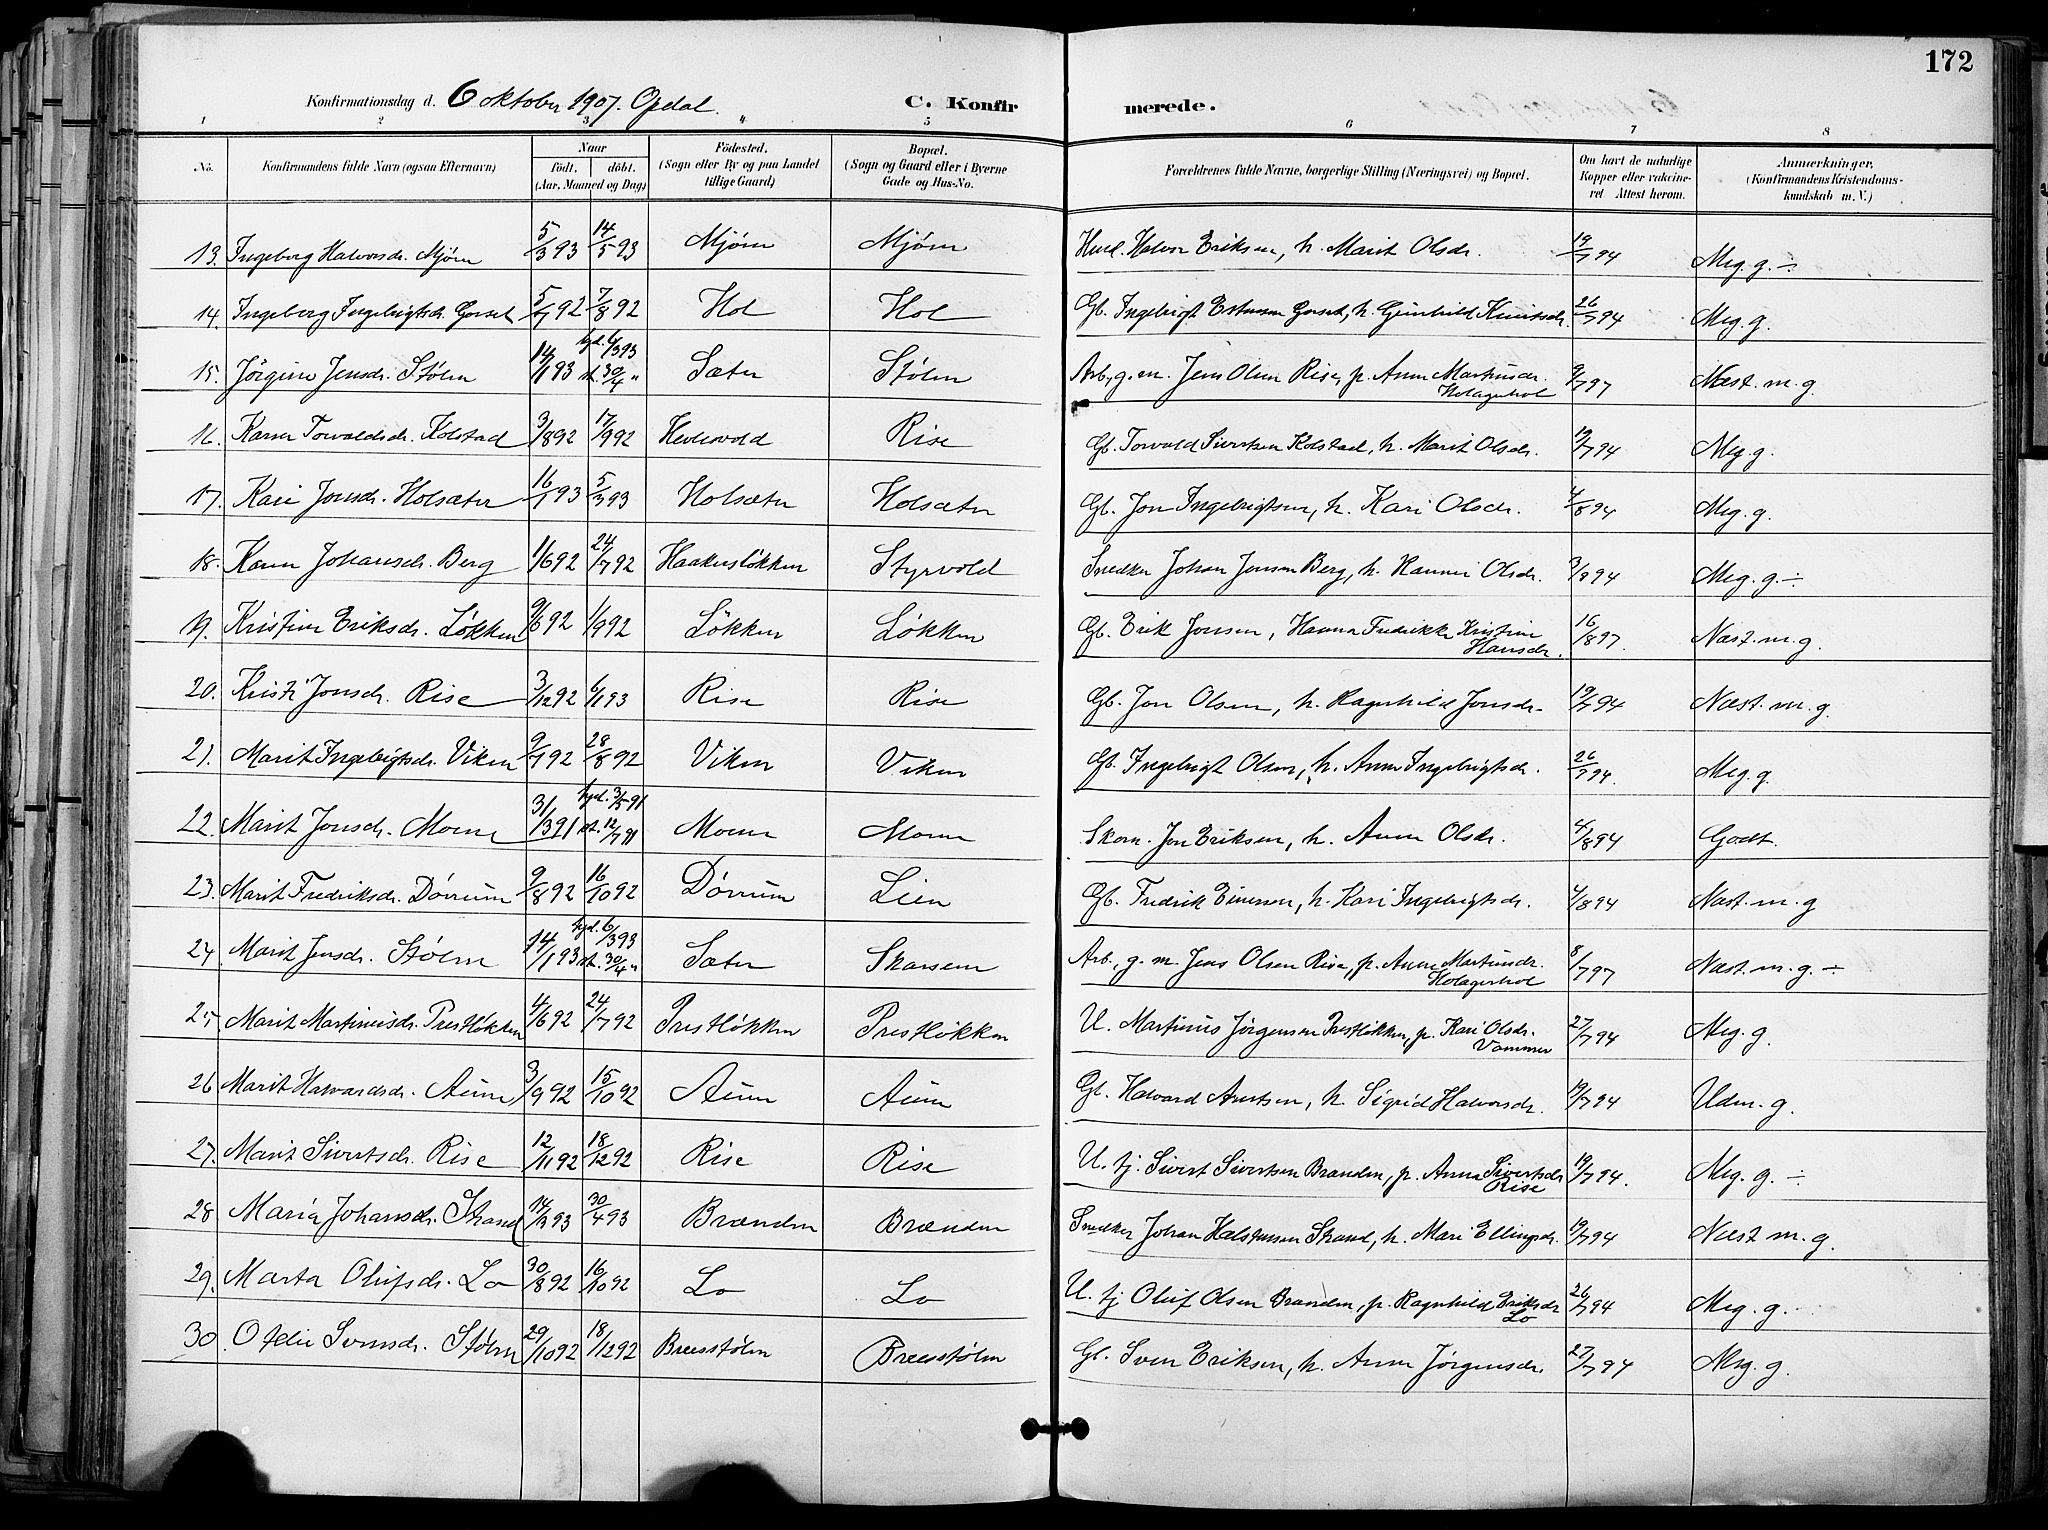 172
Konfirmationsdag d. 6 oktober 1907. Opdal. C. Konfirmerede.
1 2 3 4 5 6 7 8
No. Konfirmandens fulde Navn (ogsaa Efternavn) Naar födt. döbt. (Aar, Maaned og Dag) Födested. (Sogn eller By og paa Landet tillige Gaard) Bopæl. (Sogn og Gaard eller i Byerne Gade og Hus-No. Forældrenes fulde Navne, borgerlige Stilling (Næringsvei) og Bopæl. Om havt de naturlige Kopper eller vakcineret Attest herom. Anmærkninger. (Konfirmandens Kristendomskundskab m. V.)
13. Ingeborg Halvorsdr. Mjøen 5/3 93 14/5 93 Mjøen Mjøen Husl. Halvor Eriksen, h. Marit Olsdr. 19/7 94 Meg. g. ÷
14. Ingeborg Ingebrigtsdr. Gorset 5/7 92 7/8 92 Hol Hol Gb. Ingebrigt Estensen Gorset, h. Gunhild Knutsdr. 26/7 94 Meg. g.
15. Jörgine Jensdr. Stølen 14/1 93 hjd. 6/3 93 st. 30/4 " Sæter Stølen Arb., g. m. Jens Olsen Rise, p. Anne Martinsdr. Holagerhol 9/7 97 Næst. m. g.
16. Karen Torvaldsdr. Kolstad 3/8 92 17/9 92 Hevlevold Rise Gb. Torvald Sivertsen Kolstad, h. Marit Olsdr. 19/7 94 Meg. g.
17. Kari Jonsdr. Holsæter 16/1 93 5/3 93 Holsæter Holsæter Gb. Jon Ingebrigtsen, h. Kari Olsdr. 4/8 94 Meg. g.
18. Karen Johansdr. Berg 1/6 92 24/7 92 Haakensløkken Styrvold Snedker Johan Jensen Berg, h. Rannei Olsdr. 3/8 94 Meg. g. ÷
19. Kristine Eriksdr. Løkken 9/6 92 1/9 92 Løkken Løkken Gb. Erik Jonsen, Hanna Fredrikke Kristine Hansdr. 16/8 97. Næst. m. g.
20. Kristi Jonsdr. Rise 3/12 92 6/1 93 Rise Rise Gb. Jon Olsen, h. Ragnhild Jonsdr. 19/7 94 Næst. m. g.
21. Marit Ingebrigtsdr. Viken 9/7 92 28/8 92 Viken Viken Gb. Ingebrigt Olsen, h. Anne Ingebrigtsdr. 26/7 94. Meg. g.
22. Marit Jonsdr. Moene 31/3 91 hjd. 3/5 91 st. 12/7 91 Moene Moene Skom. Jon Eriksen, h. Anne Olsdr. 4/8 94 Godt.
23. Marit Fredriksdr. Dørrum 9/8 92 16/10 92 Dørrum Lien Gb. Fredrik Einersen, h. Kari Ingebrigtsdr. 4/8 94 Næst. m. g
24. Marit Jensdr. Stølen 14/1 93 hjd. 6/3 93 st. 30/4 " Sæter Skarsem Arb., g. m. Jens Olsen Rise, p. Anne Martinsdr. Holagerhol 8/7 97 Næst. m. g. ÷
25. Marit Martinusdr. Prestløkken 4/6 92 24/7 92 Prestløkken Prestløkken U. Martinus Jörgensen Prestløkken, p. Kari Olsdr. Vammer 27/7 94 Meg. g.
26 Marit Halvardsdr. Aune 3/9 92 15/10 92 Aune Aune Gb. Halvard Arntsen, h. Sigrid Halvorsdr. 19/7 94 Udm. g.
27. Marit Sivertsdr. Rise 12/11 92 18/12 92 Rise Rise U. tj. Sivert Sivertsen Brænden, p. Anne Sivertsdr. Rise 19/7 94. Meg. g. ÷
28 Maria Johansdr. Strand 14/3 93 30/4 93 Brænden Brænden Snedker Johan Halstensen Strand, h. Mari Ellingsdr. 19/7 94 Næst m. g.
29. Marta Olufsdr. Lo 30/8 92 16/10 92 Lo Lo U. tj Oluf Olsen Brænden, p. Ragnhild Eriksdr. Lo 26/7 94 Meg. g.
30. Ofelie Svensdr. Stølen 29/10 92 18/12 92 Breesstølen Breesstølen Gb. Sven Eriksen, h. Anne Jørgensdr. 27/7 94 Meg. g.